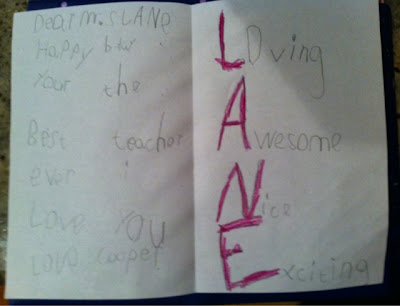 Dear m.sLANe
Happy btw
Your the
Best teacher
ever i
Love you
Love Cooper
Loving
Awesome
Nice
Exciting